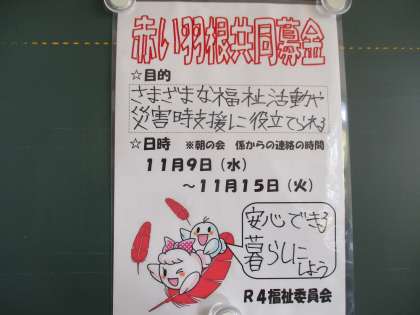 赤い羽根共同募金
☆目的
さまざまな福祉活動や
災害時支援に役立てられる
☆日時 ※朝の会 係からの連絡の時間
11月9日（水）
～11月15日（火）
安心できる
暮らしに
しよう
R4福祉委員会